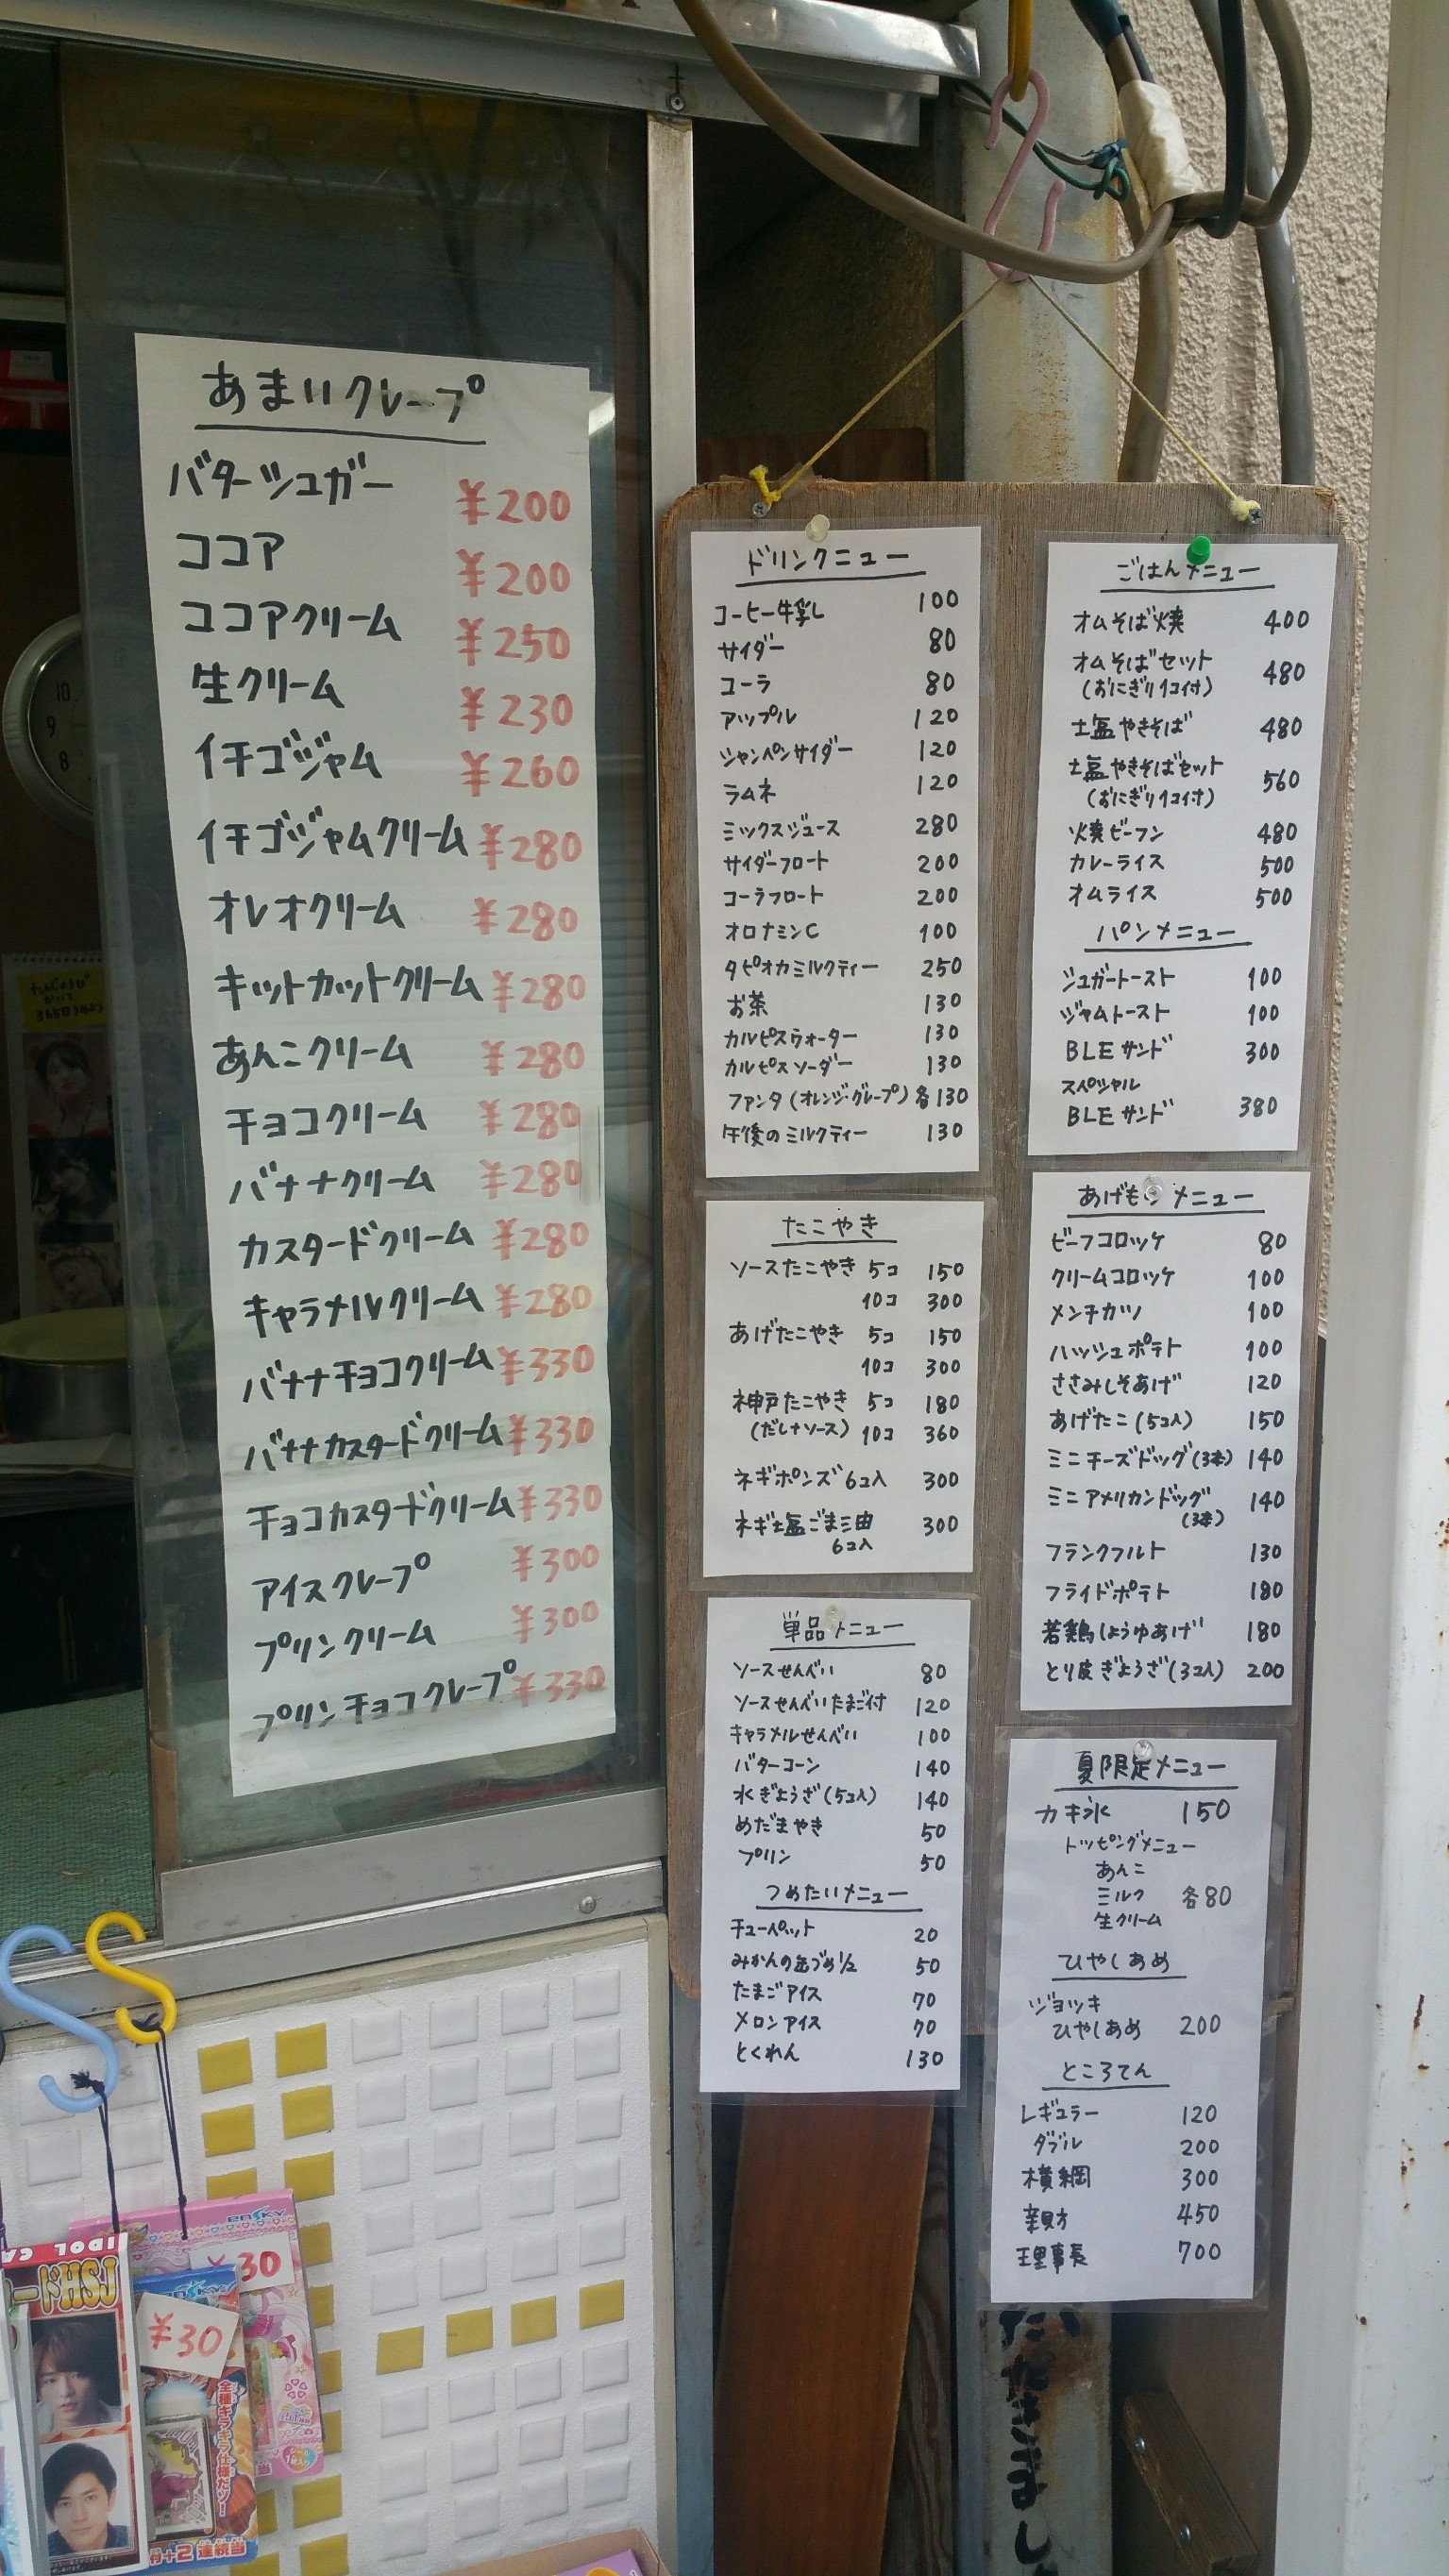 あまいクレープ
バターシュガー ¥200
ココア ¥200
ココアクリーム ¥250
生クリーム ¥230
イチゴジャム ¥260
イチゴジャムクリーム ¥280
オレオクリーム ¥280
キットカットクリーム ¥280
あんこクリーム ¥280
チョコクリーム ¥280
バナナクリーム ¥280
カスタードクリーム ¥280
キャラメルクリーム ¥280
バナナチョコクリーム ¥330
バナナカスタードクリーム ¥330
チョコカスタードクリーム ¥330
アイスクレープ ¥300
プリンクリーム ¥300
プリンチョコクレープ ¥330
ドリンクニュー
コーヒー牛乳し 100
サイダー 80
コーラ 80
アップル 120
シャンペンサイダー 120
ラムネ 120
ミックスジュース 280
サイダーフロート 200
コーラフロート 200
オロナミンC 100
タピオカミルクティー 250
お茶 130
カルピスウォーター 130
カルピスソーダー 130
ファンタ(オレンジ・グレープ)各130
午後のミルクティー 130
たこやき
ソースたこやき 5コ 150
10コ 300
あげたこやき 5コ 150
10コ 300
神戸たこやき 5コ 180
(だし+ソース) 10コ 360
ネギポンズ 6コ入 300
ネギ塩ごま油 300
6コ入
単品メニュー
ソースせんべい 80
ソースせんべいたまご付 120
キャラメルせんべい 100
バターコーン 140
水ぎょうざ(5コ入) 140
めだまやき 50
プリン 50
つめたいメニュー
チューペット 20
みかんの缶づめ1/2 50
たまごアイス 70
メロンアイス 70
とくれん 130
ごはんメニュー
オムそば焼 400
オムそばセット 480
(おにぎり1コ付)
塩やきそば 480
塩やきそばセット 560
(おにぎり1コ付)
焼ビーフン 480
カレーライス 500
オムライス 500
パンメニュー
シュガートースト 100
ジャムトースト 100
BLEサンド 300
スペシャル
BLEサンド 380
あげものメニュー
ビーフコロッケ 80
クリームコロッケ 100
メンチカツ 100
ハッシュポテト 100
ささみしそあげ 120
あげたこ(5コ入) 150
ミニチーズドッグ(3本) 140
ミニアメリカンドッグ 140
(3本)
フランクフルト 130
フライドポテト 180
若鶏しょうゆあげ 180
とり皮ぎょうざ(3コ入) 200
夏限定メニュー
カキ氷 150
トッピングメニュー
あんこ
ミルク 各80
生クリーム
ひやしあめ
ジョッキ
ひやしあめ 200
ところてん
レギュラー 120
ダブル 200
横綱 300
親方 450
理事長 700
10
9
8
365日
ensky
¥30
IDOL CA
ードHSJ
ensky
¥30
全種キラキラ仕様だゾ!
付+2 連続当